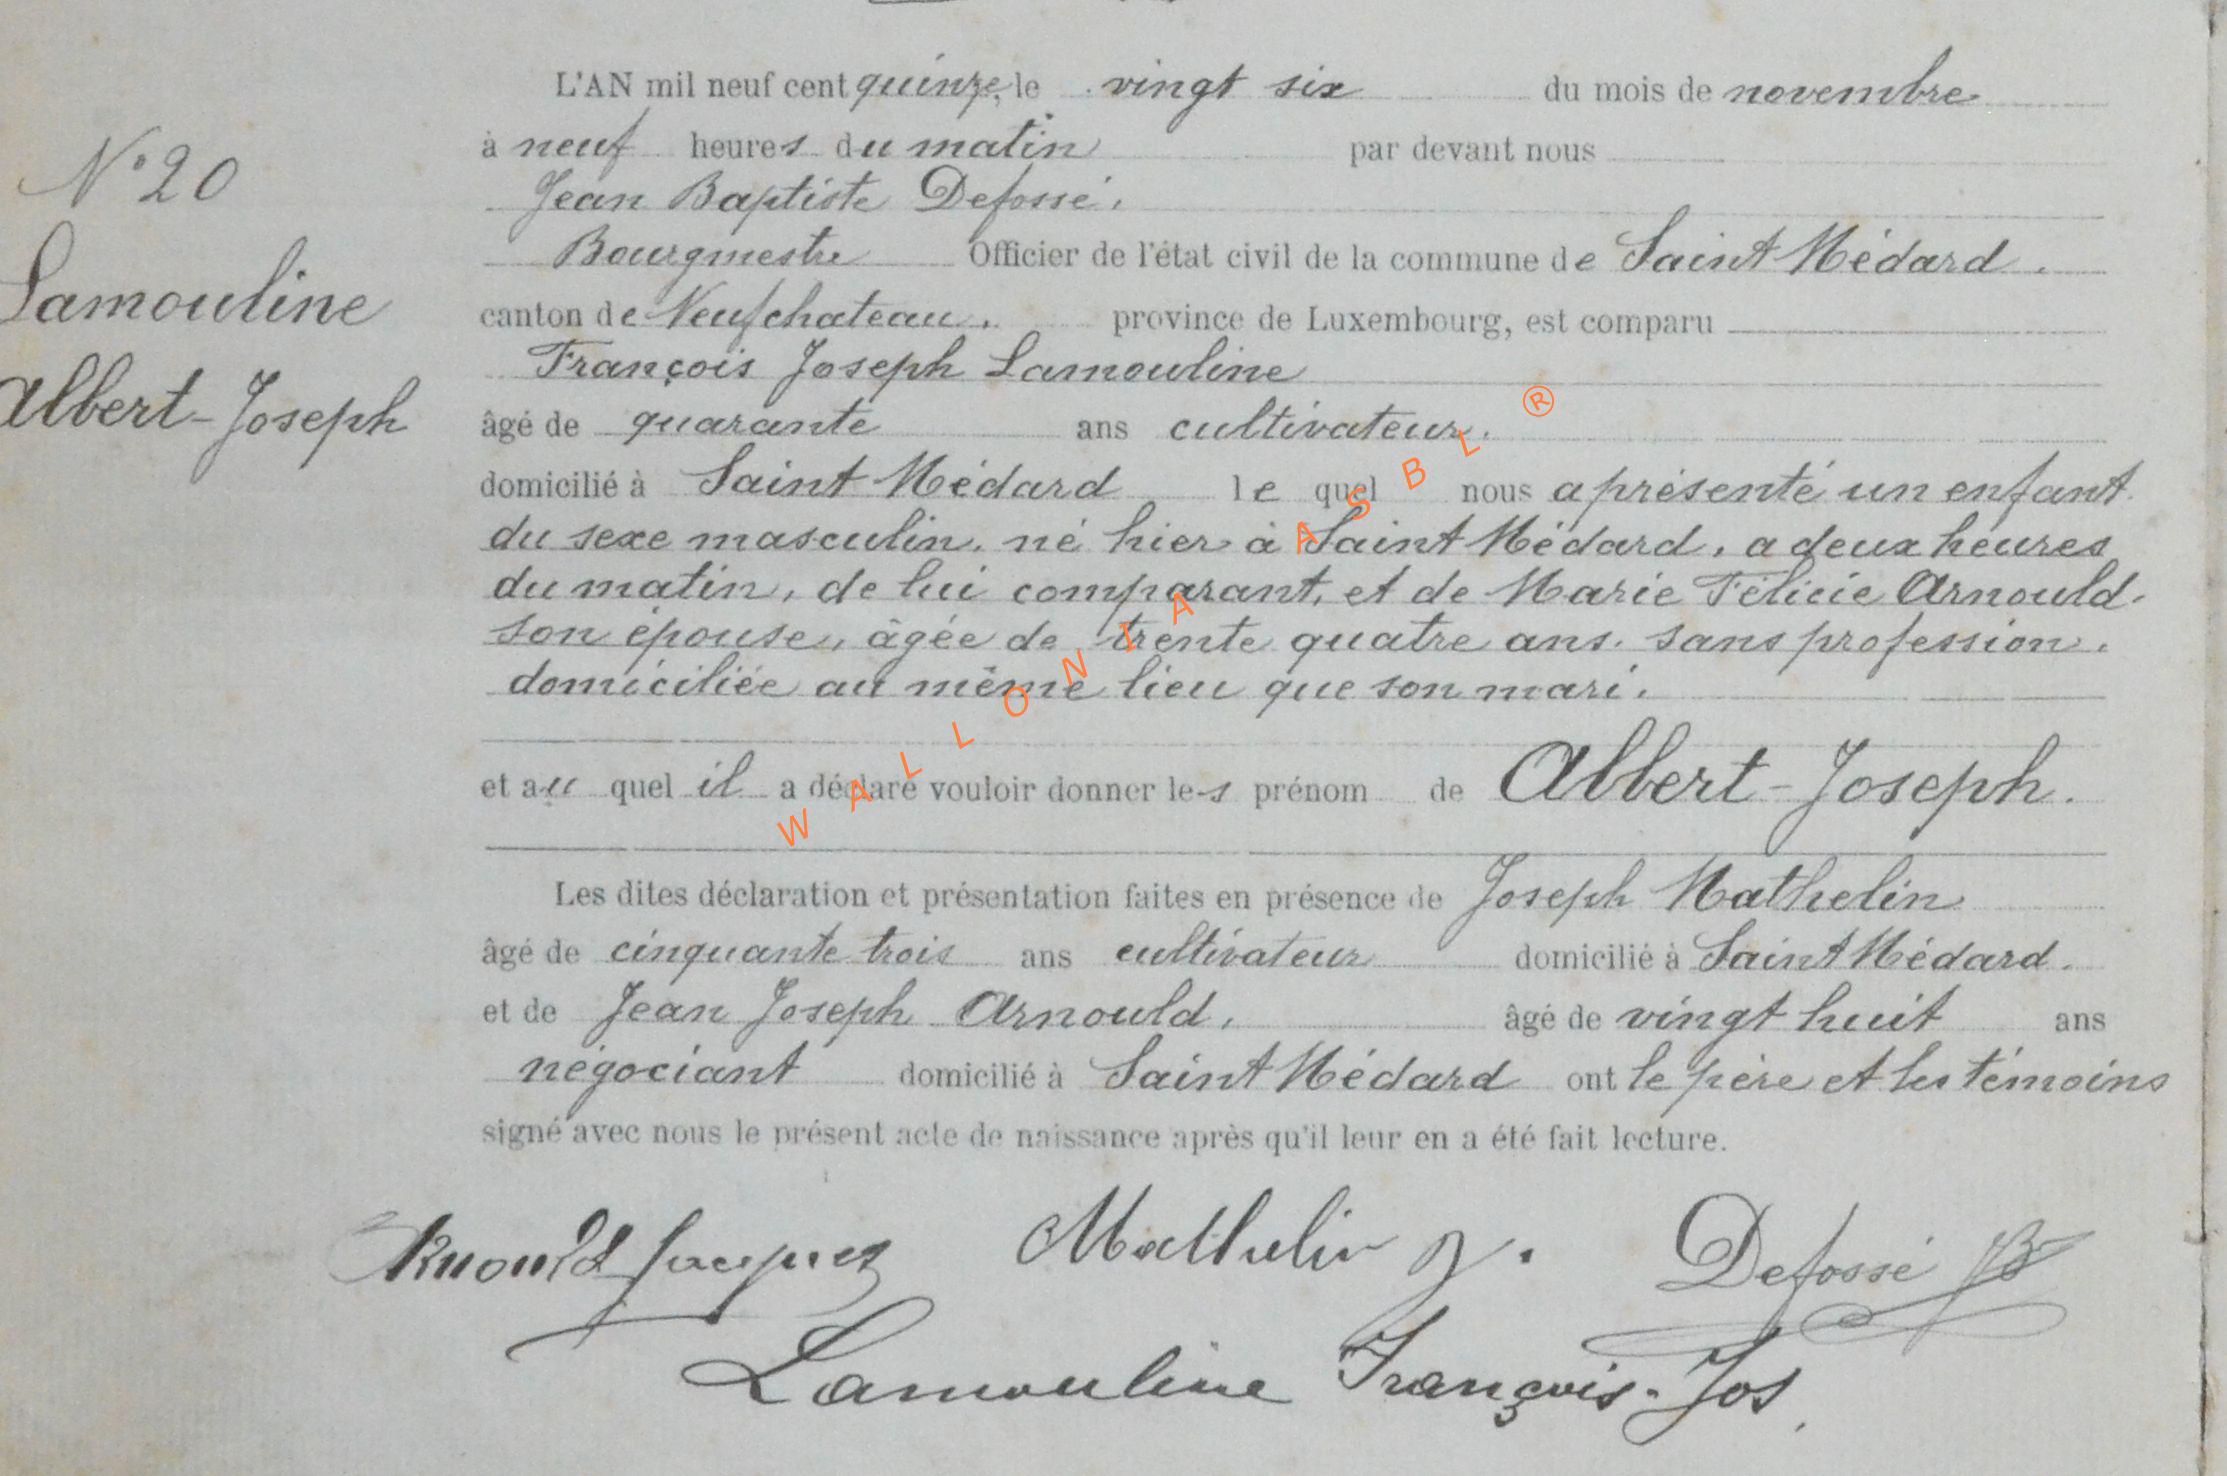 N° 20
Lamouline
Albert-Joseph
L'AN mil neuf cent quinze, le vingt six du mois de novembre
à neuf heures du matin par devant nous
Jean Baptiste Defossé,
Bourgmestre Officier de l'état civil de la commune de Saint Médard.
canton de Neufchateau. province de Luxembourg, est comparu
François Joseph Lamouline
âgé de quarante ans cultivateur.
domicilié à Saint Médard le quel nous a présenté un enfant
du sexe masculin. né hier à Saint Médard, a deux heures
du matin, de lui comparant, et de Marie Félicie Arnould.
son épouse, âgée de trente quatre ans. sans profession.
domiciliée au même lieu que son mari.
et au quel il a déclaré vouloir donner les prénom de Albert-Joseph.
Les dites déclaration et présentation faites en présence de Joseph Mathelin
âgé de cinquante trois ans cultivateur domicilié à Saint Médard.
et de Jean Joseph Arnould, âgé de vingt huit ans
négociant domicilié à Saint Médard ont le père et les témoins
signé avec nous le présent acte de naissance après qu'il leur en a été fait lecture.
Arnould Jacques Mathelin J. Defossé JB
Lamouline François-Jos
WALLONIA ASBL ®